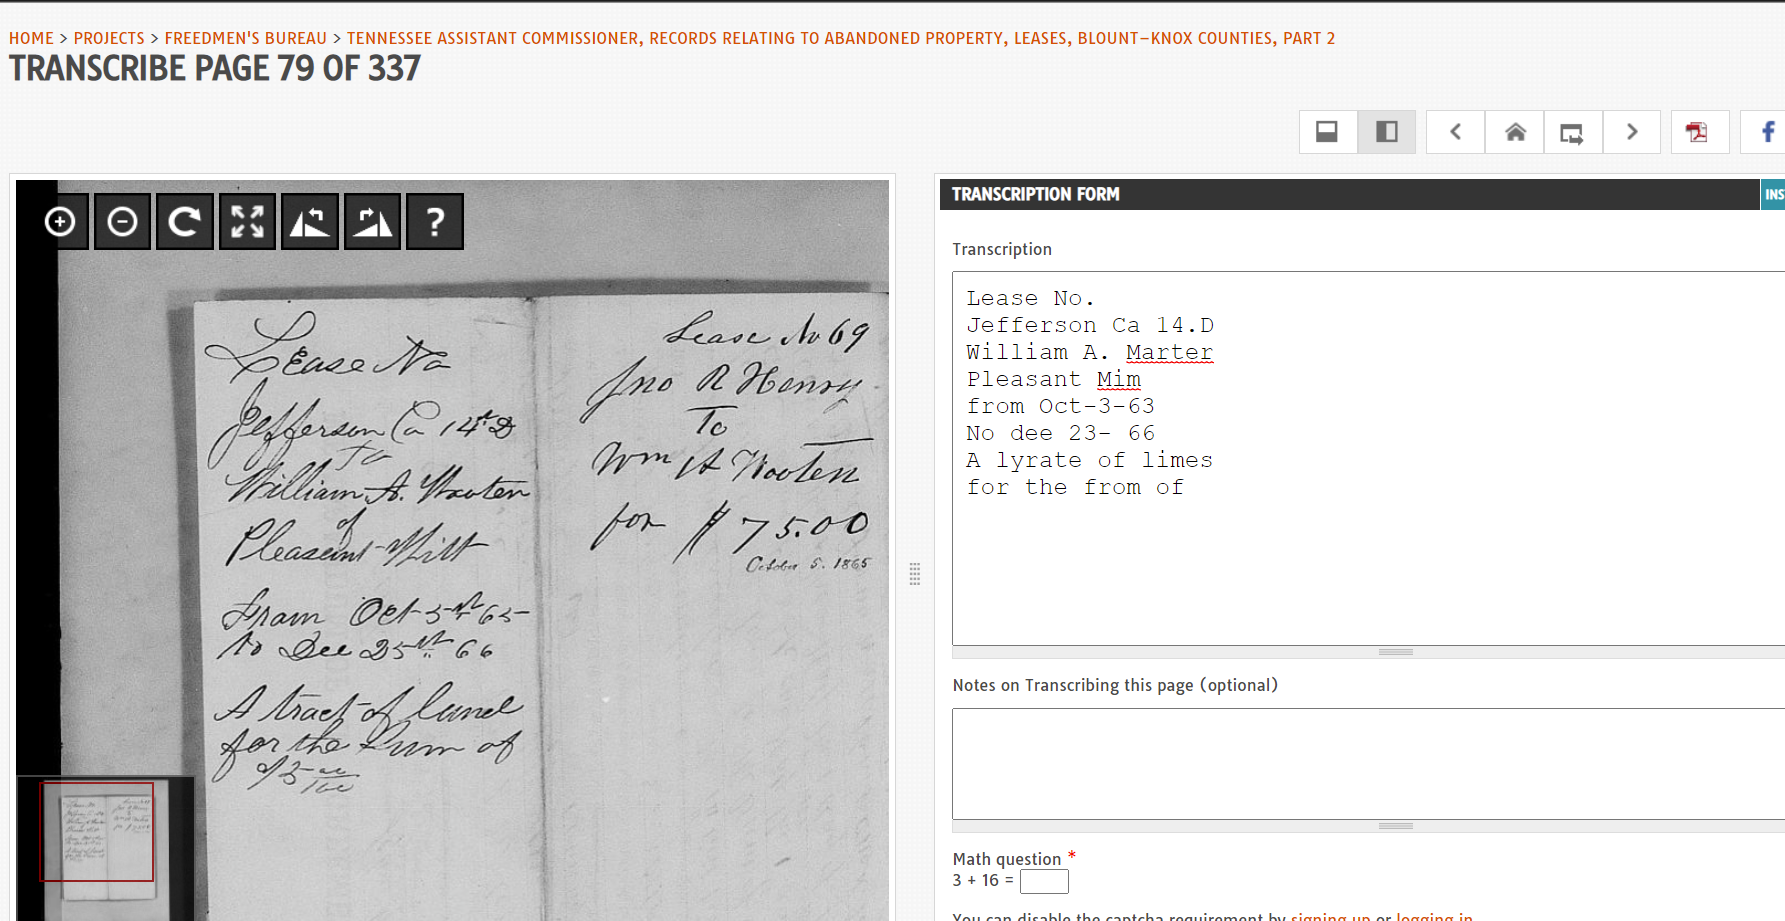 HOME > PROJECTS > FREEDMEN'S BUREAU > TENNESSEE ASSISTANT COMMISSIONER, RECORDS RELATING TO ABANDONED PROPERTY, LEASES, BLOUNT–KNOX COUNTIES, PART 2
TRANSCRIBE PAGE 79 OF 337
?
Lease No
Jefferson Co 14th D
To
William A. Wooten
of
Pleasant
From Oct 5th 65
to Dec 25th 66
A tract of land
for the sum of
75 00/100
Lease No 69
Jno R Henry
To
Wm A Wooten
for $75.00
October 5. 1865
TRANSCRIPTION FORM
INS
Transcription
Lease No.
Jefferson Ca 14.D
William A. Marter
Pleasant Mim
from Oct-3-63
No dee 23- 66
A lyrate of limes
for the from of
Notes on Transcribing this page (optional)
Math question *
3 + 16 =
You can disable the captcha requirement by signing up or logging in